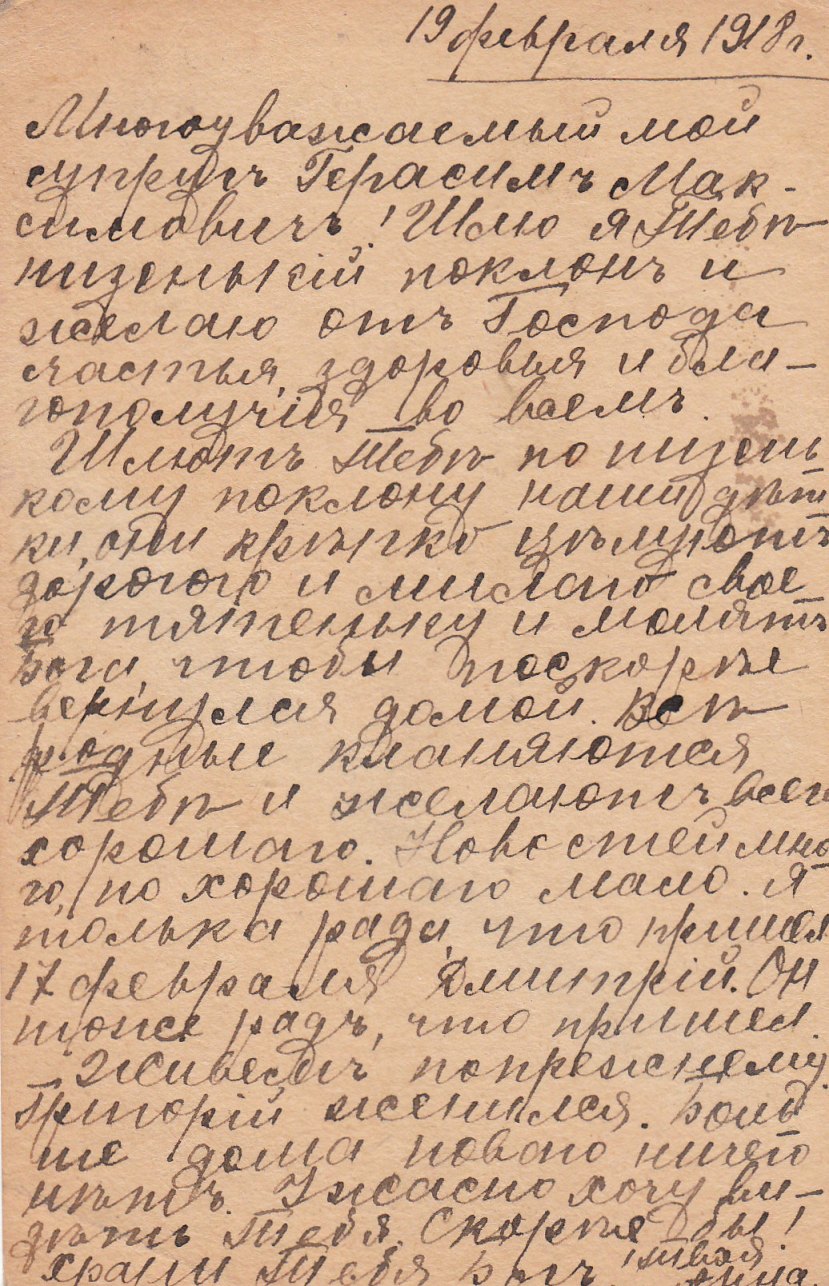 19 февраля 1918 г.
Многоуважаемый мой
супругъ Герасимъ Мак-
симовичъ! Шлю я Тебѣ
низенькій поклонъ и
желаю отъ Господа
счастья, здоровья и бла-
гополучія во всемъ.
Шлютъ Тебѣ по низень
кому поклону наши дѣт
ки, они крѣпко цѣлуютъ
дорогого и милаго свое
го тятеньку и молятъ
Бога, чтобы поскорѣе
вернулся домой. Всѣ
родные кланяются
Тебѣ и желаютъ всего
хорошаго. Новостей мно
го, но хорошаго мало. Я
только рада, что пришел
17 февраля Дмитрій. Он
тоже радъ, что пришел.
Живемъ попрежнему.
Григорій женился. Боль
ше дома новаго ничего
нѣтъ. Ужасно хочу ви-
дѣть Тебя. Скорѣе бы!
Храни Тебя Богъ! Твоя